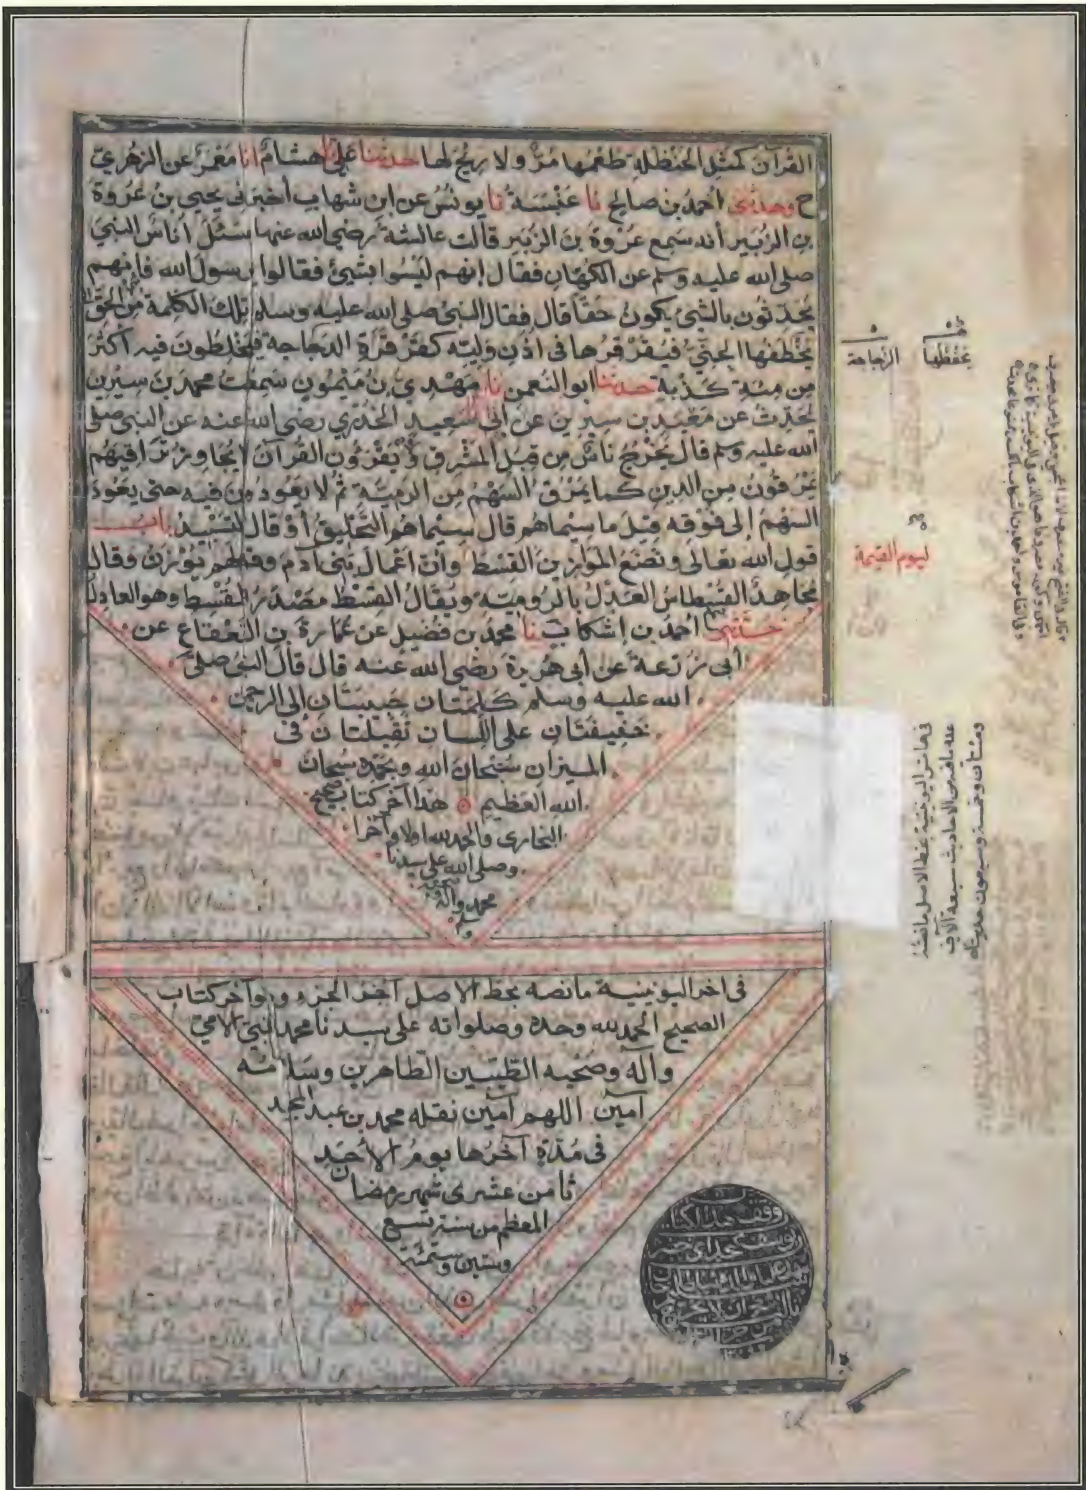 القُرآن كمثل الحنظلة طعمها مُرٌّ ولا ريح لها حدثنا علي نا هشام أنا معمر عن الزهري
ح وحدثني أحمد بن صالح نا عنبسة نا يونس عن ابن شهاب أخبرني يحيى بن عروة
بن الزبير أنه سمع عروة بن الزبير قالت عائشة رضي الله عنها سئل أناس النبي
صلى الله عليه وسلم عن الكهان فقال إنهم ليسوا بشيئ فقالوا يرسول الله فإنهم
يحدثون بالشئ يكون حقا قال فقال النبي صلى الله عليه وسلم تلك الكلمة من الحق
يخطفها الجني فيقرقرها في أذن وليه كقرقرة الدجاجة فيخلطون فيه أكثر
من مئة كذبة حدثنا ابو النعمن نا مهدي بن ميمون سمعت محمد بن سيرين
يحدث عن معبد بن سيرين عن أبي سعيد الخدري رضي الله عنه عن النبي صلى
الله عليه وسلم قال يخرج ناس من قبل المشرق ويقرؤن القرآن لا يجاوز تراقيهم
يمرقون من الدين كما يمرق السهم من الرمية ثم لا يعودون فيه حتى يعود
السهم إلى فوقه قيل ما سيماهم قال سيماهم التحليق أو قال التسبيد باب
قول الله تعالى ونضع الموازين القسط وأن أعمال بني آدم وقولهم توزن وقال
مجاهد القسطاس العدل بالرومية ويقال القسط مصدر المقسط وهو العادل
حدثني أحمد بن إشكاب نا محمد بن فضيل عن عمارة بن القعقاع عن
أبي زرعة عن أبي هريرة رضي الله عنه قال قال النبي صلى
الله عليه وسلم كلمتان حبيبتان إلى الرحمن
خفيفتان على اللسان ثقيلتان في
الميزان سبحان الله وبحمده سبحان
الله العظيم هذا آخر كتاب صحيح
البخارى والحمد لله اولا وآخرا
وصلى الله على سيدنا
محمد وآله
وسلم
يخفظها
الزجاجة
ليوم القيمة
في هامش اليونينية بخط الاصل ما نصه
عدد ما فيه من الاحاديث سبعة آلاف
ومئتان وخمسة وسبعون حديثا
في اخر اليونينية ما نصه بخط الاصل آخر الجزء وهو آخر كتاب
الصحيح الحمد لله وحده وصلواته على سيدنا محمد النبي الامي
وآله وصحبه الطيبين الطاهرين وسلامه
آمين اللهم آمين نقله محمد بن عبد المجيد
في مدة آخرها يوم الأحد
ثامن عشرى شهر رمضان
المعظم من سنة تسع
وستين وستمئة
وقف هذا الكتاب